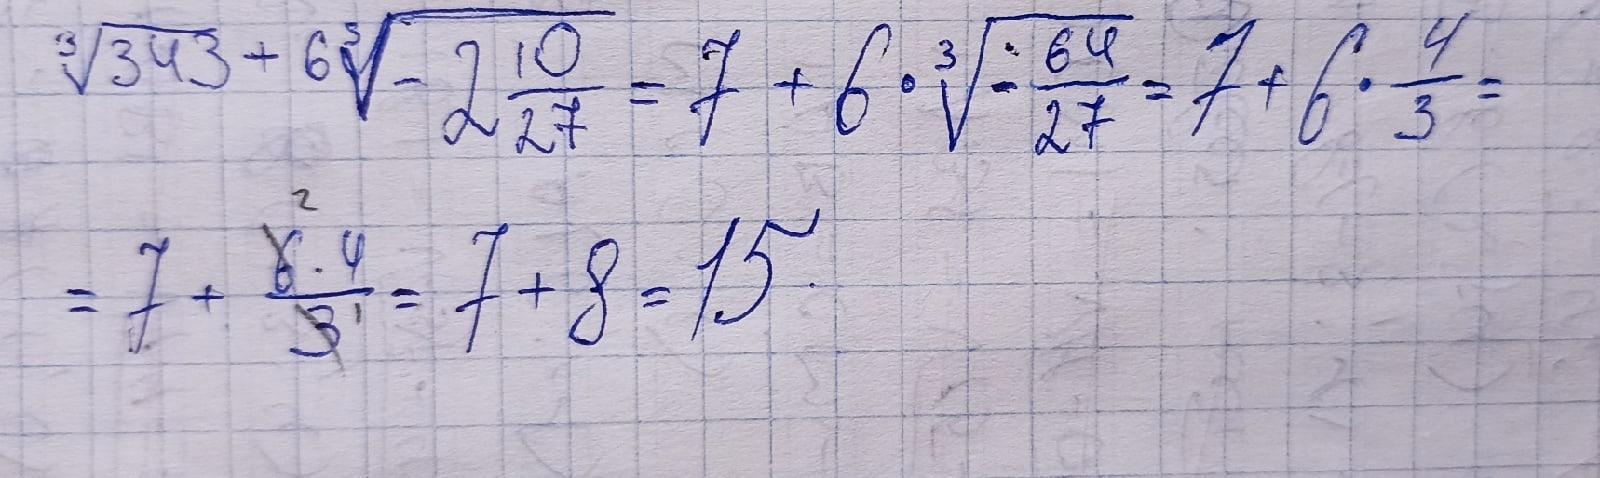 ∛343 + 6∛(-2 10/27) = 7 + 6 · ∛(-64/27) = 7 + 6 · 4/3 =
= 7 + (6 · 4)/3 = 7 + 8 = 15.